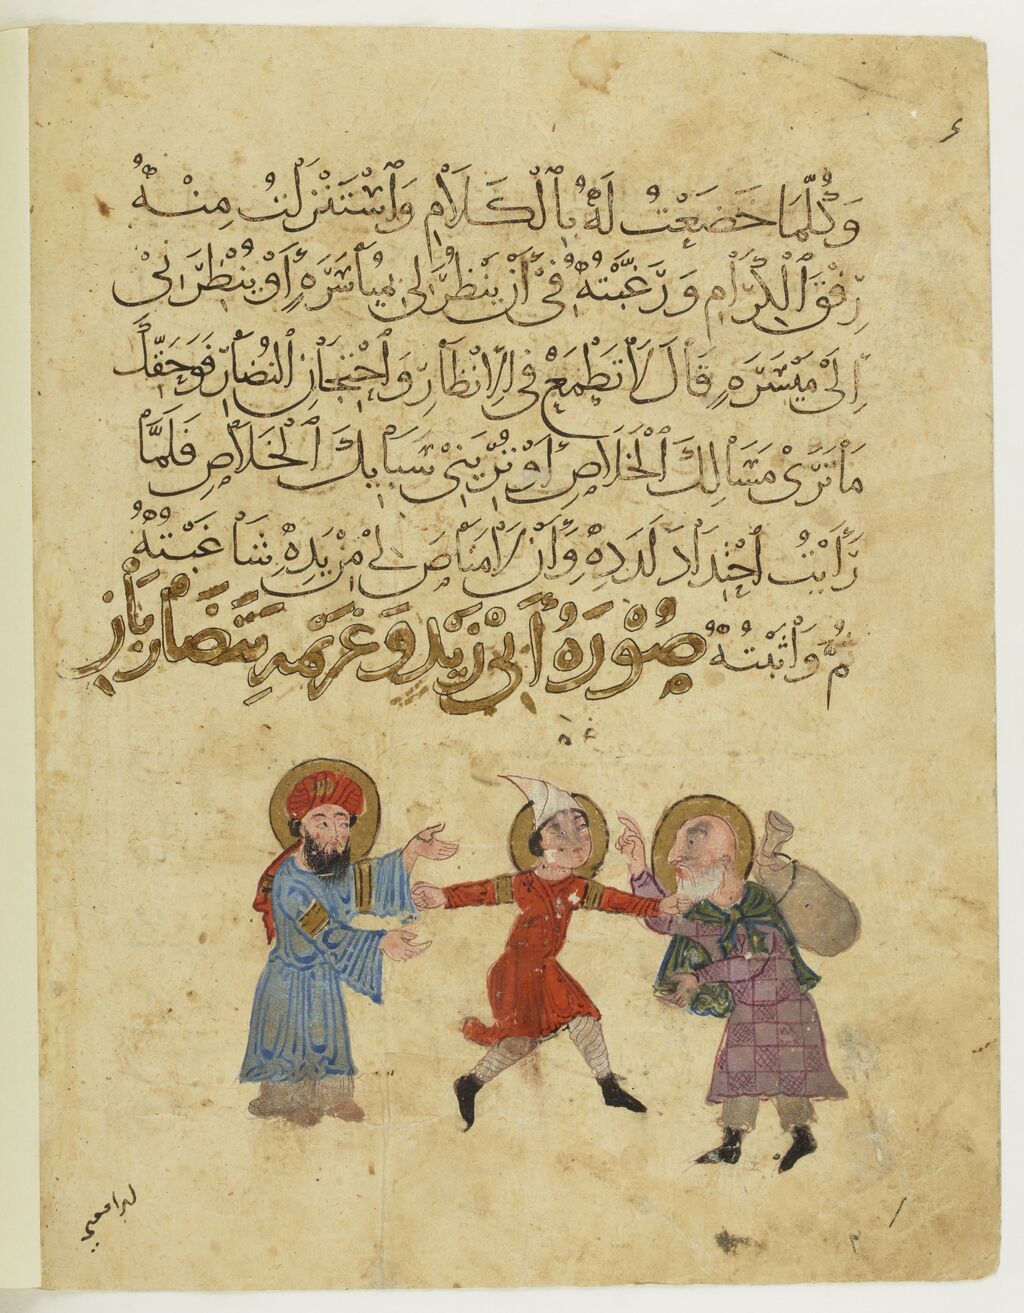 وَكُلَّمَا خَضَعْتُ لَهُ بِالْكَلَامِ وَاسْتَنْزَلْتُ مِنْهُ
رِفْقَ الْكِرَامِ وَرَغَّبْتُهُ فِي أَنْ يَنْظُرَ لِي بِمُيَاسَرَةٍ أَوْ يُنْظِرَنِي
إِلَى مَيْسَرَةٍ قَالَ لَا تَطْمَعْ فِي الْإِنْظَارِ وَاحْتِجَانِ النُّضَارِ فَوَحَقِّكَ
مَا تَرَى مَسَالِكَ الْخَلَاصِ أَوْ تُرِيَنِي سَبَائِكَ الْخِلَاصِ فَلَمَّا
رَأَيْتُ احْتِدَادَ لَدَدِهِ وَأَنْ لَا مَنَاصَ لِي مِنْ يَدِهِ شَاغَبْتُهُ
ثُمَّ وَاثَبْتُهُ صُورَةُ أَبِي زَيْدٍ وَغَرِيمِهِ يَتَضَارَبَانِ